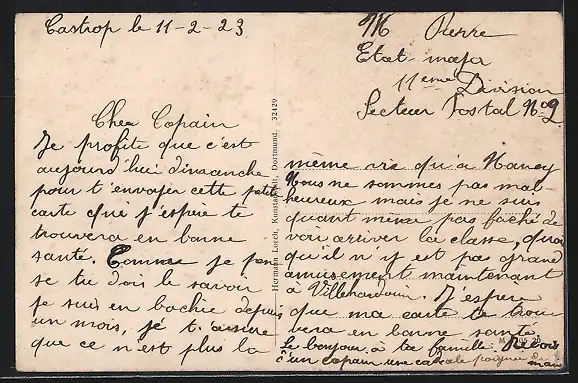 Castrop le 11-2-23
Cher Copain
Je profite que c'est
aujourd'hui dimanche
pour t'envoyer cette petite
carte que j'espère te
trouvera en bonne
santé. Comme je pense
se tu dois le savoir
je suis en bochie depuis
un mois, je t'assure
que ce n'est plus la
Hermann Lorch, Kunstanstalt, Dortmund. 32429
Mr Pierre
Etat-major
11eme Division
Secteur Postal No 9
même vie qu'à Nancy
Nous ne sommes pas mal-
heureux mais je ne suis
quant même pas faché de
voir arriver la classe, quoi
qu'il n'y est pas grand
amusement maintenant
à Villehardouin. J'espère
que ma carte te trou
vera en bonne santé
Le bonjour à ta famille. Reçois
d'un copain une cordiale poignée de main